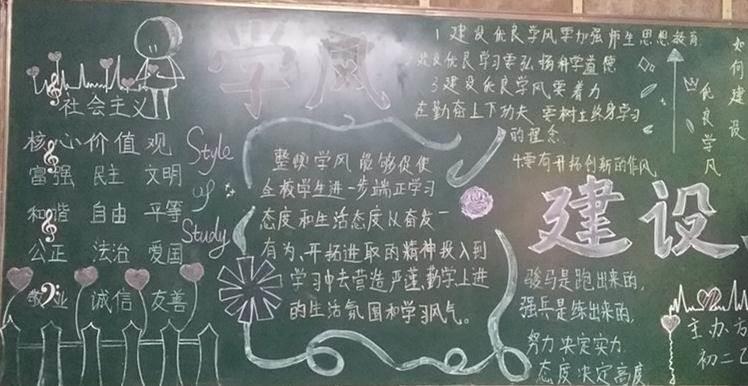 社会主义
核心价值观
富强 民主 文明
和谐 自由 平等
公正 法治 爱国
敬业 诚信 友善
Style
of
Study
学风
整顿学风 能够促使
全校学生进一步端正学习
态度和生活态度从奋发
有为、开拓进取的精神投入到
学习中去营造严谨、勤学上进
的生活氛围和学习风气。
1 建设优良学风要加强师生思想教育
建设优良学习要弘扬科学道德
3 建设优良学风要着力
在勤奋上下功夫 要树立终身学习
的理念
4.要有开拓创新的作风
如何建设
优良学风
建设
骏马是跑出来的,
强兵是练出来的,
努力决定实力
态度决定高度
主办方
初二